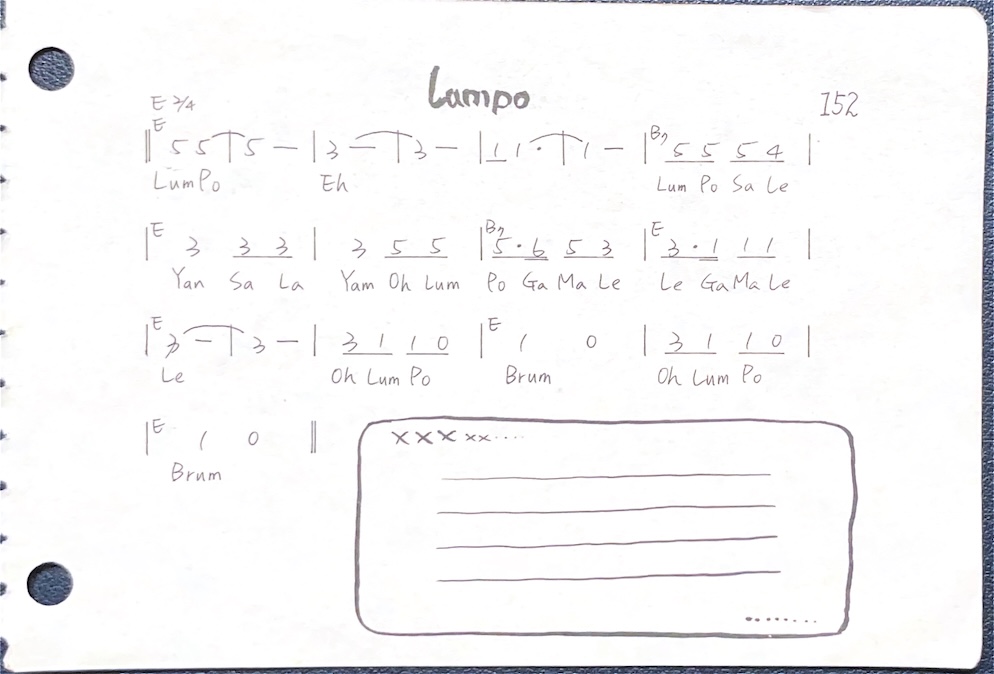 Lampo
E 2/4 152
E B7
‖ 5 5 | 5 — | 3 — | 3 — | 1 1 · | 1 — | 5 5 5 4 |
LumPo Eh Lum Po Sa Le
E B7 E
| 3 3 3 | 3 5 5 | 5 · 6 5 3 | 3 · 1 1 1 |
Yan Sa La Yam Oh Lum Po Ga Ma Le Le Ga Ma Le
E E
| 3 — | 3 — | 3 1 1 0 | 1 0 | 3 1 1 0 |
Le Oh Lum Po Brum Oh Lum Po
E
| 1 0 ‖
Brum
×××××····